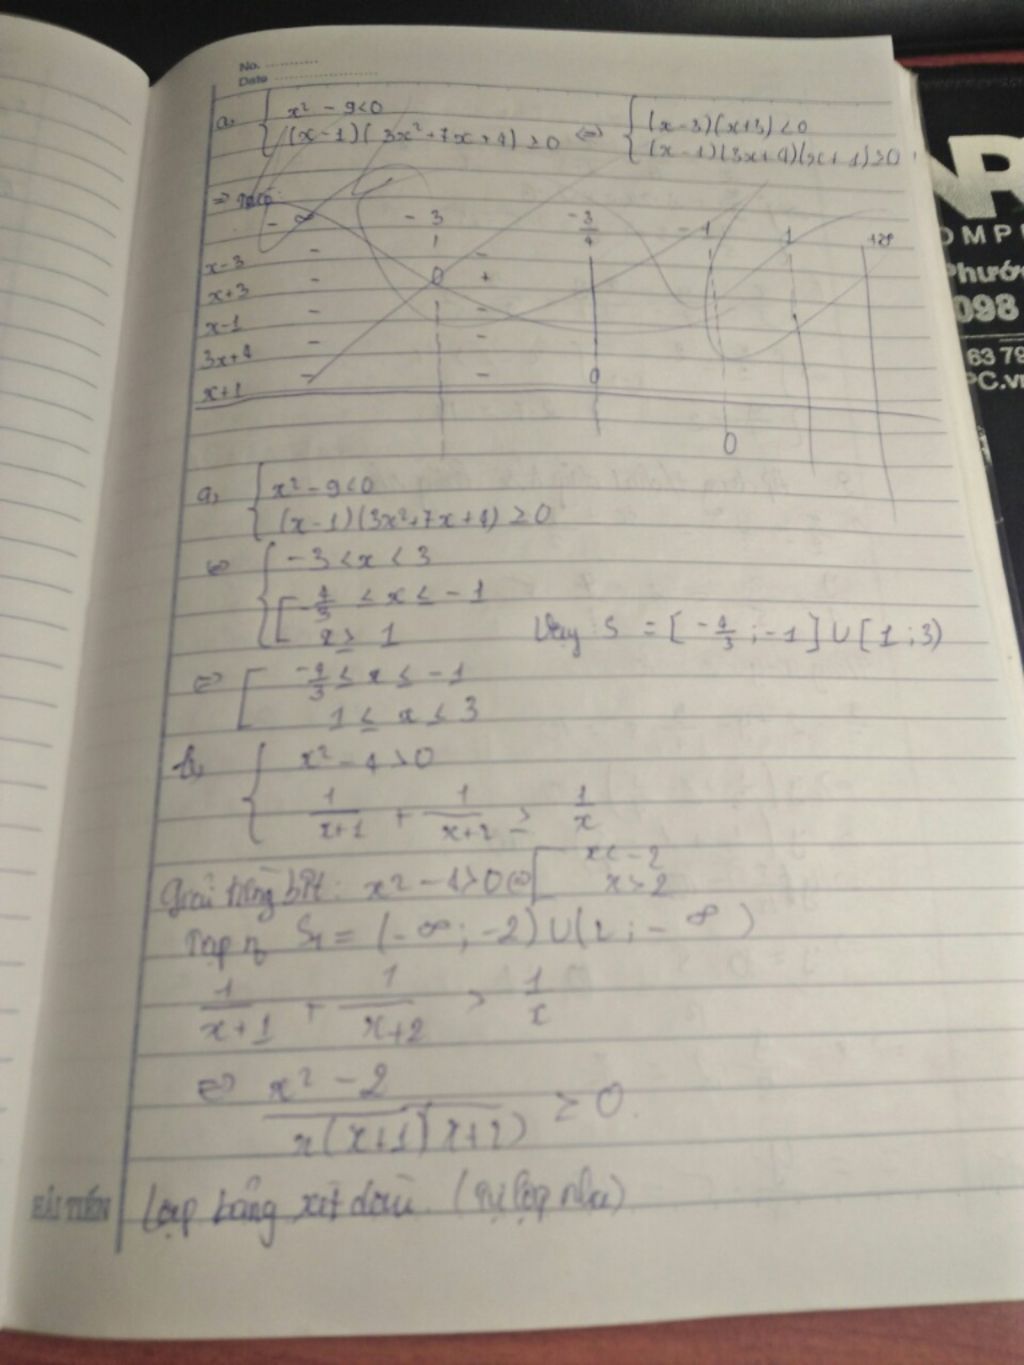 No. ..........
Date ......................
a. { x² - 9 < 0
{ (x-1)(3x²+7x+4) ≥ 0 ⇔ { (x-3)(x+3) < 0
{ (x-1)(3x+4)(x+1) ≥ 0
-∞ -3 -3/4 -1 1 +∞
x-3 - -
x+3 - 0 +
x-1 - -
3x+4 - -
x+1 - - 0
0
a, { x² - 9 < 0
{ (x-1)(3x²+7x+4) ≥ 0
⇔ { -3 < x < 3
{ [ -4/3 ≤ x ≤ -1
[ x ≥ 1 Vậy S = [-4/3 ; -1] ∪ [1 ; 3)
⇔ [ -4/3 ≤ x ≤ -1
[ 1 ≤ x ≤ 3
b, { x² - 4 > 0
{ 1/(x+1) + 1/(x+2) ≥ 1/x
Giải từng bPt: x² - 4 > 0 ⇔ [ x < -2
[ x > 2
Tập n₀ S₁ = (-∞ ; -2) ∪ (2 ; -∞)
1/(x+1) + 1/(x+2) > 1/x
⇔ (x² - 2)/(x(x+1)(x+2)) ≥ 0.
Lập bảng xét dấu. (tự lập nha)
HẢI TIẾN
OMPU
Phước
098
63 79
PC.vn